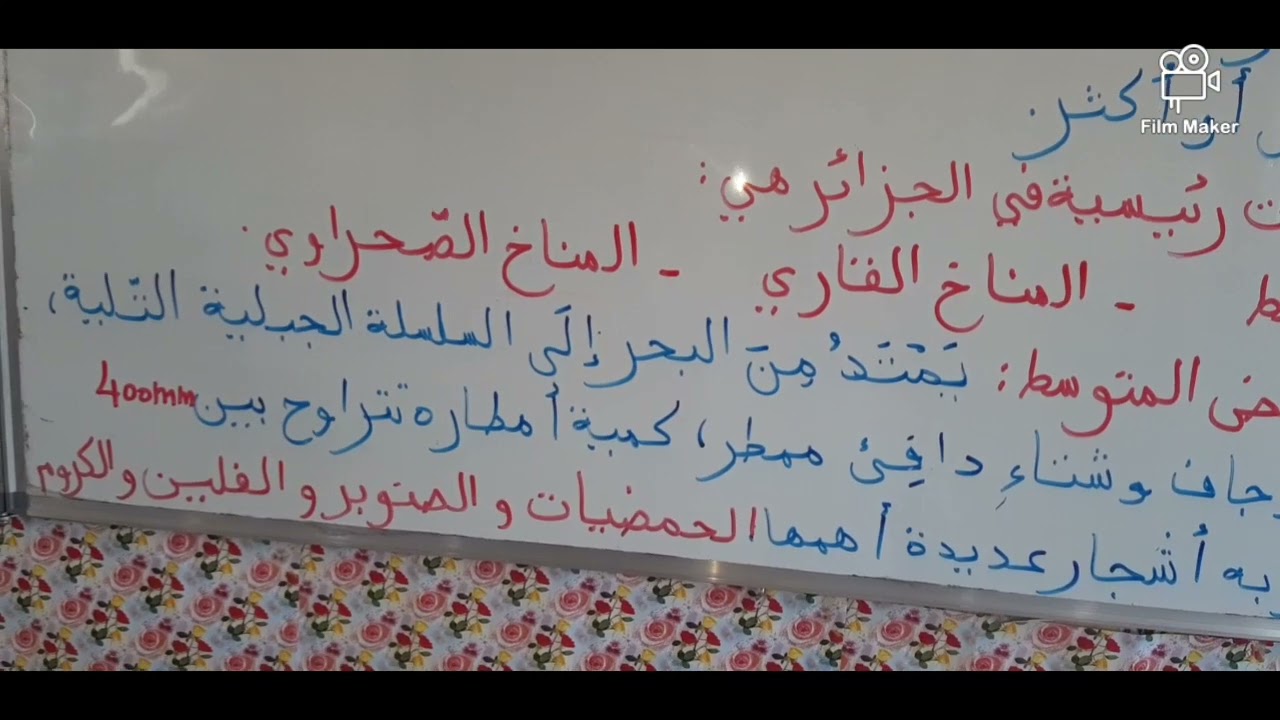 أو أكثر.
Film Maker
رئيسية في الجزائر هي:
- المناخ القاري - المناخ الصّحراوي.
المتوسط: يَمْتَدُ مِنَ البحر إلَى السلسلة الجبلية التّلية،
جاف وشتاءِ دافِئ ممطر، كمية أمطاره تتراوح بين 400mm
به أشجار عديدة أهمها الحمضيات و الصنوبر و الفلين و الكروم